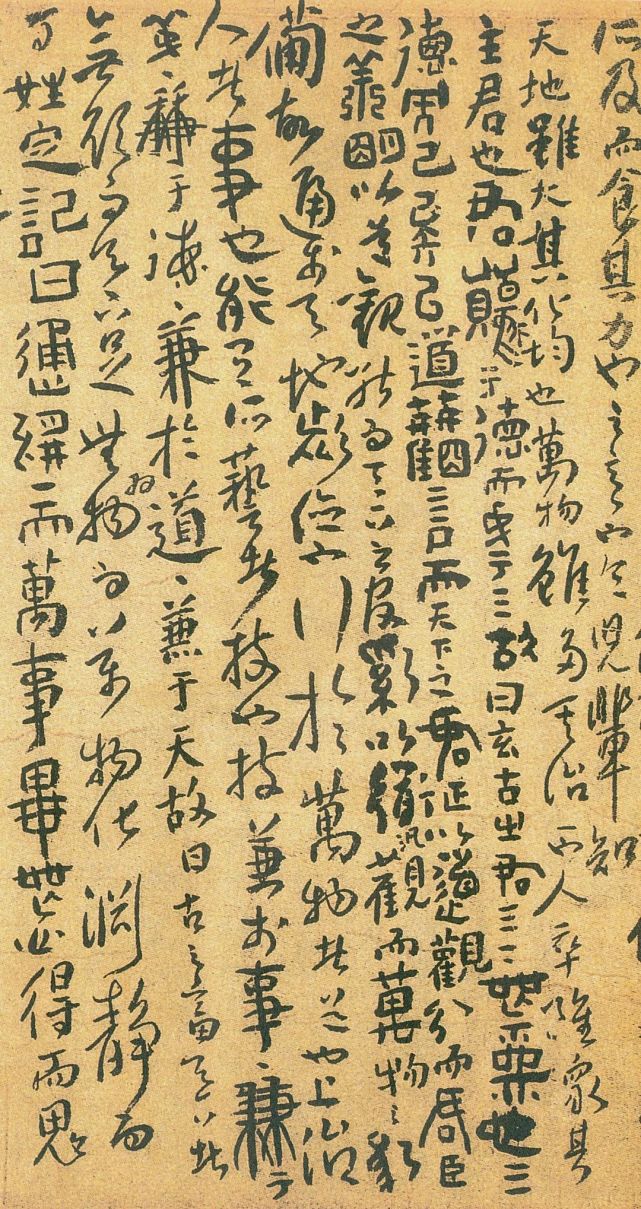 所及而食其力也之言也兒輩知
天地雖大其化均也萬物雖多其治一也人卒雖眾其
主君也君原于德而成于天故曰玄古之君天下無為也天
德而已矣以道觀言而天下之君正以道觀分而君臣
之義明以道觀能而天下之官治以道汎觀而萬物之應
備故通於天地者德也行於萬物者道也上治
人者事也能有所藝者技也技兼於事〻兼于
義〻兼于德〻兼於道〻兼于天故曰古之畜天下者
無欲而天下足無為而萬物化淵靜而
百姓定記曰通於一而萬事畢無心得而鬼